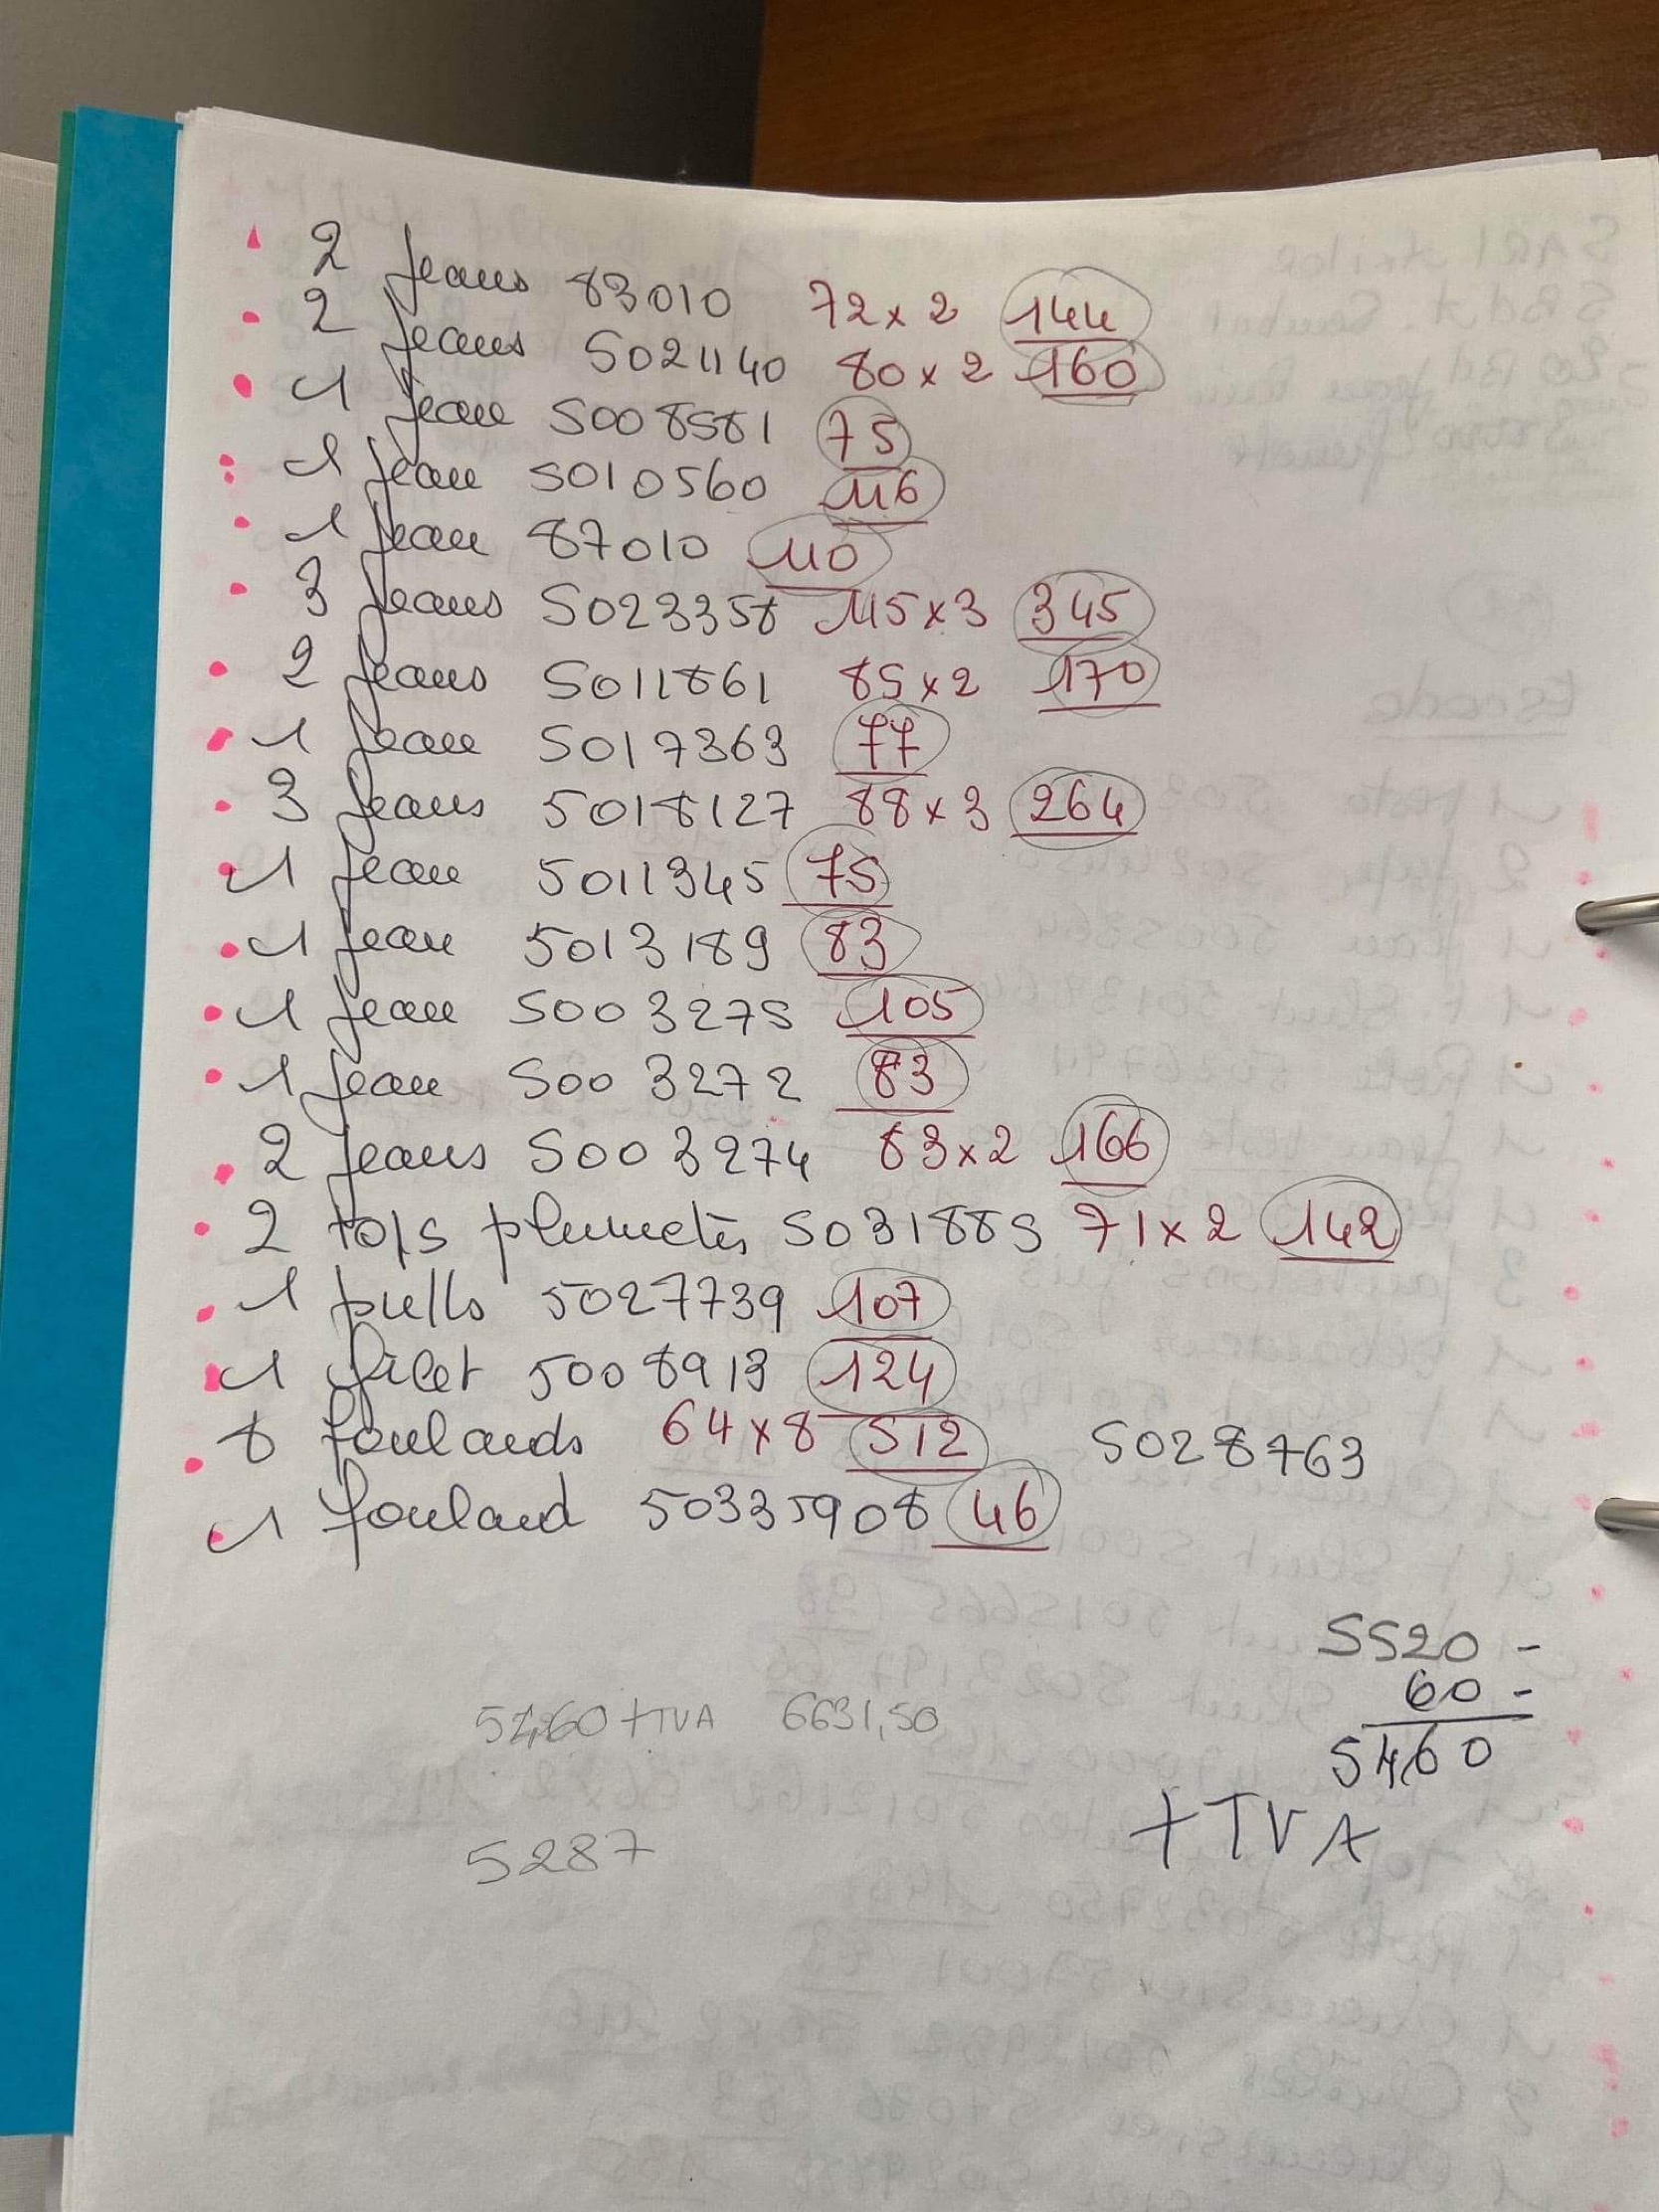 2 Jeans 83010 72 x 2 144
2 Jeans 5021140 80 x 2 160
1 Jean 5008581 75
1 Jean 5010560 116
1 Jean 87010 110
3 Jeans 5023358 115 x 3 345
2 Jeans 5011861 85 x 2 170
1 Jean 5017363 77
3 Jeans 5018127 88 x 3 264
1 Jean 5011345 75
1 Jean 5013189 83
1 Jean 5003275 105
1 Jean 5003272 83
2 Jeans 5003274 83 x 2 166
2 tops plumetis 5031889 71 x 2 142
1 pulls 5027739 107
1 filet 5008913 124
8 foulards 64 x 8 512 5028763
1 foulard 50335908 46
5520 -
60 -
5460
+ TVA
5460 + TVA 6631,50
5287